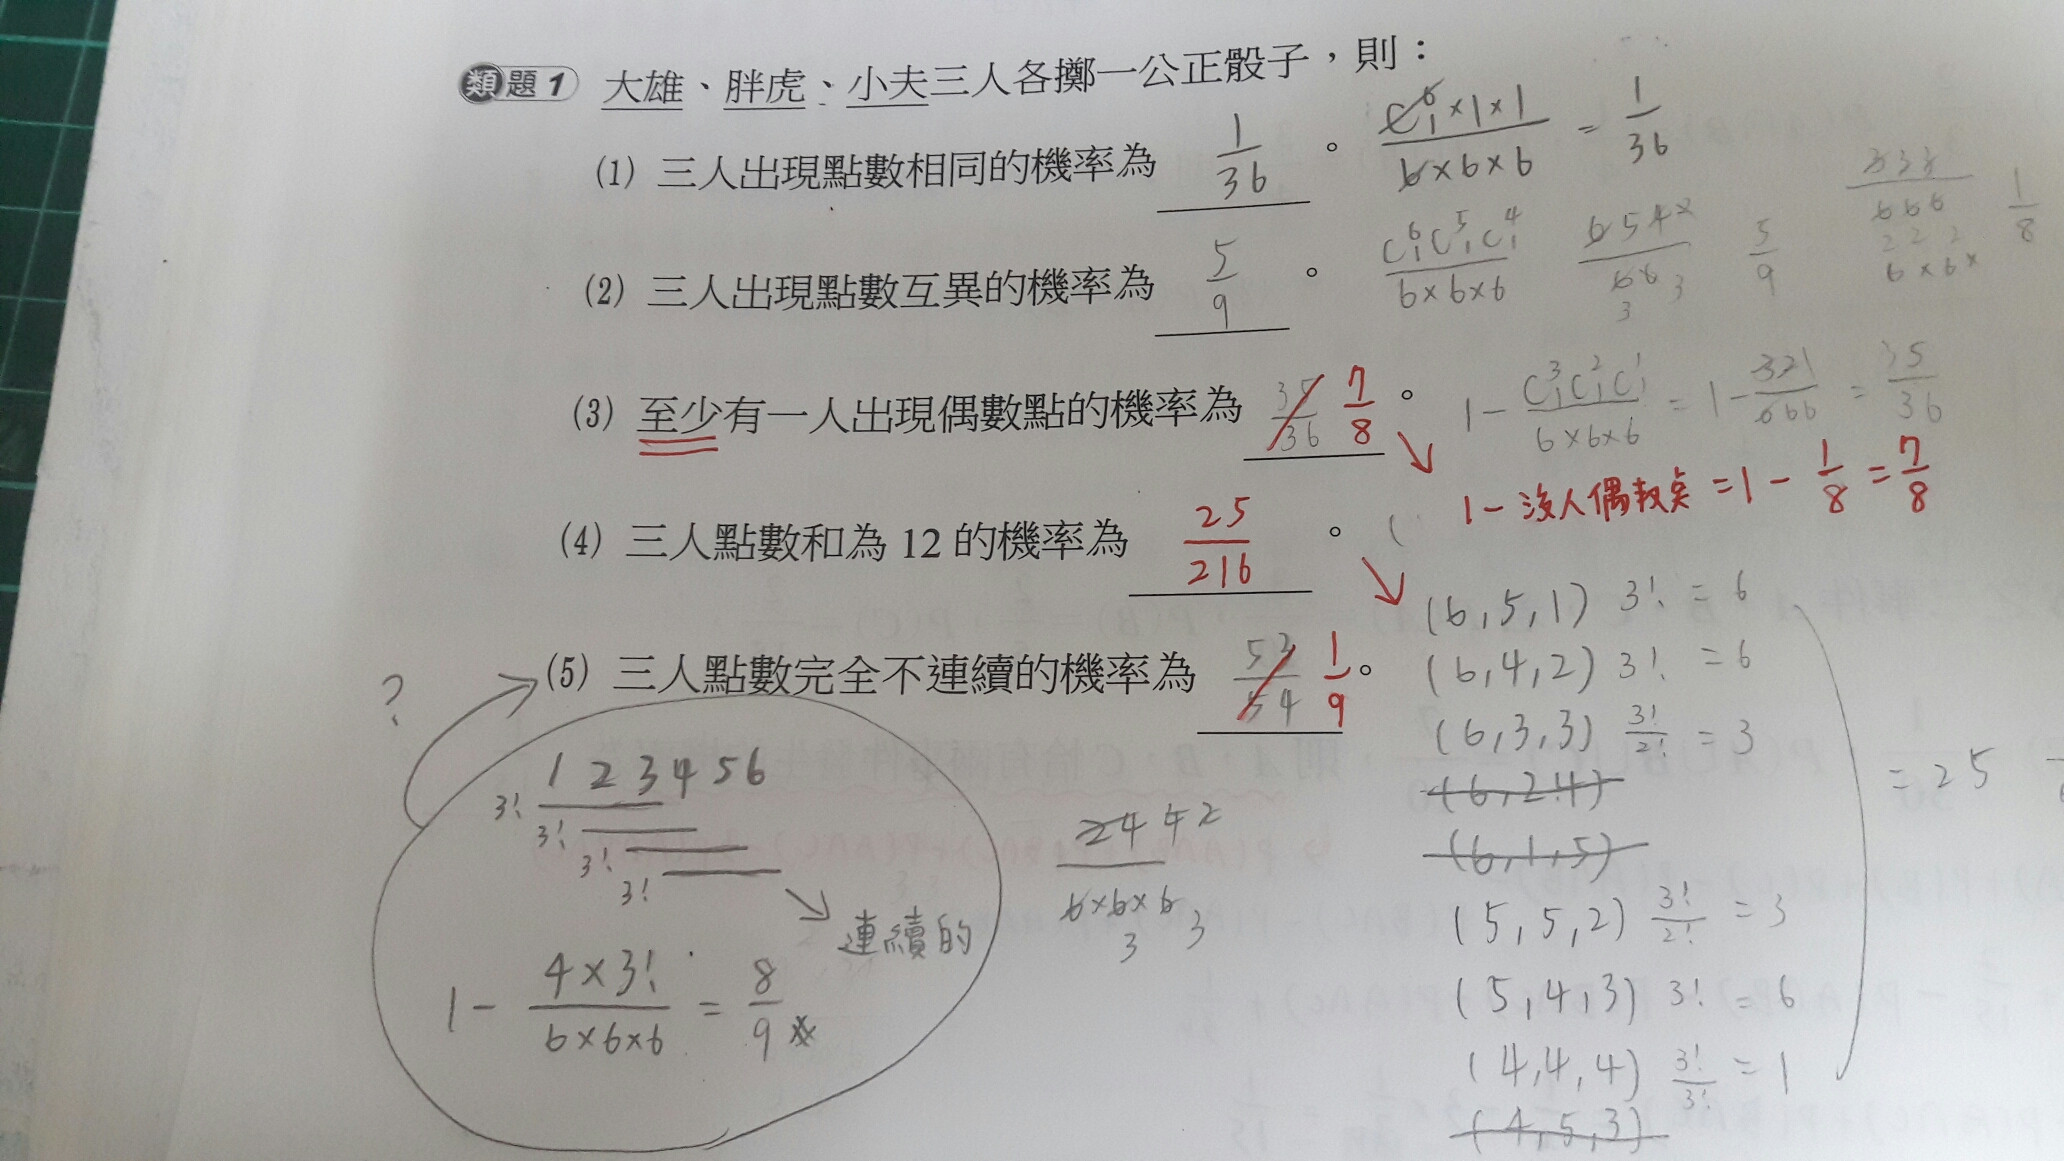 類題1 大雄、胖虎、小夫三人各擲一公正骰子,則:
(1) 三人出現點數相同的機率為 1/36 。 C⁶₁×1×1 / 6×6×6 = 1/36
(2) 三人出現點數互異的機率為 5/9 。 C⁶₁C⁵₁C⁴₁ / 6×6×6 654 2 / 66 3 3 5/9
333 / 666 1/8
2 2 2
6×6×
(3) 至少有一人出現偶數點的機率為 35/36 7/8 。 1 - C³₁C²₁C¹₁ / 6×6×6 = 1 - 321/666 = 35/36
1 - 沒人偶數点 = 1 - 1/8 = 7/8
(4) 三人點數和為 12 的機率為 25/216 。
(6,5,1) 3! = 6
(6,4,2) 3! = 6
(6,3,3) 3!/2! = 3
(6,2,4)
(6,1,5)
(5,5,2) 3!/2! = 3
(5,4,3) 3! = 6
(4,4,4) 3!/3! = 1
(4,5,3)
= 25
(5) 三人點數完全不連續的機率為 53/54 1/9 。
?
1 2 3 4 5 6
3!
3!
3!
3!
連續的
1 - 4×3! / 6×6×6 = 8/9
24 4 2 / 6×6×6 3 3